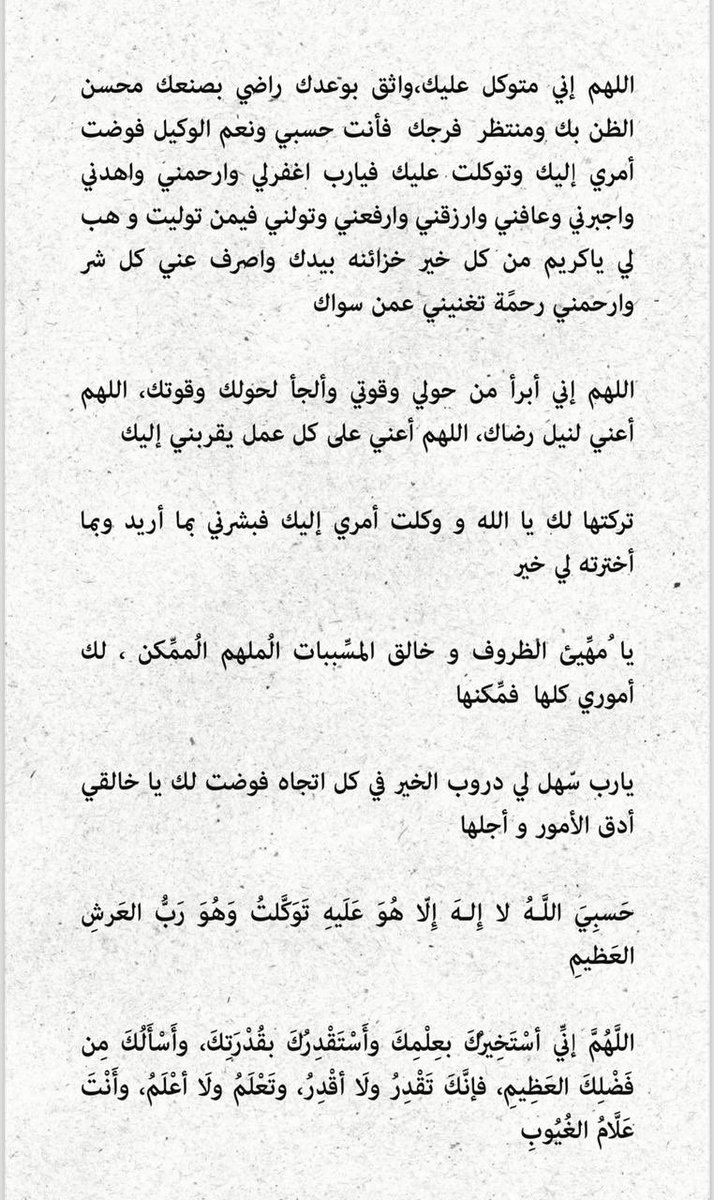 اللهم إني متوكل عليك،واثق بوعدك راضي بصنعك محسن
الظن بك ومنتظر فرجك فأنت حسبي ونعم الوكيل فوضت
أمري إليك وتوكلت عليك فيارب اغفرلي وارحمني واهدني
واجبرني وعافني وارزقني وارفعني وتولني فيمن توليت و هب
لي ياكريم من كل خير خزائنه بيدك واصرف عني كل شر
وارحمني رحمًة تغنيني عمن سواك
اللهم إني أبرأ من حولي وقوتي وألجأ لحولك وقوتك، اللهم
أعني لنيل رضاك، اللهم أعني على كل عمل يقربني إليك
تركتها لك يا الله و وكلت أمري إليك فبشرني بما أريد وبما
أخترته لي خير
يا ُمهِّيئ الظروف و خالق المسِّببات الُملهم الُممِّكن ، لك
أموري كلها فمِّكنها
يارب سّهل لي دروب الخير في كل اتجاه فوضت لك يا خالقي
أدق الأمور و أجلها
حَسبِيَ اللَّـهُ لا إِلـهَ إِلّا هُوَ عَلَيهِ تَوَكَّلتُ وَهُوَ رَبُّ العَرشِ
العَظيمِ
اللَّهُمَّ إنِّي أسْتَخِيرُكَ بعِلْمِكَ وأَسْتَقْدِرُكَ بقُدْرَتِكَ، وأَسْأَلُكَ مِن
فَضْلِكَ العَظِيمِ، فإنَّكَ تَقْدِرُ ولَا أقْدِرُ، وتَعْلَمُ ولَا أعْلَمُ، وأَنْتَ
عَلَّامُ الغُيُوبِ